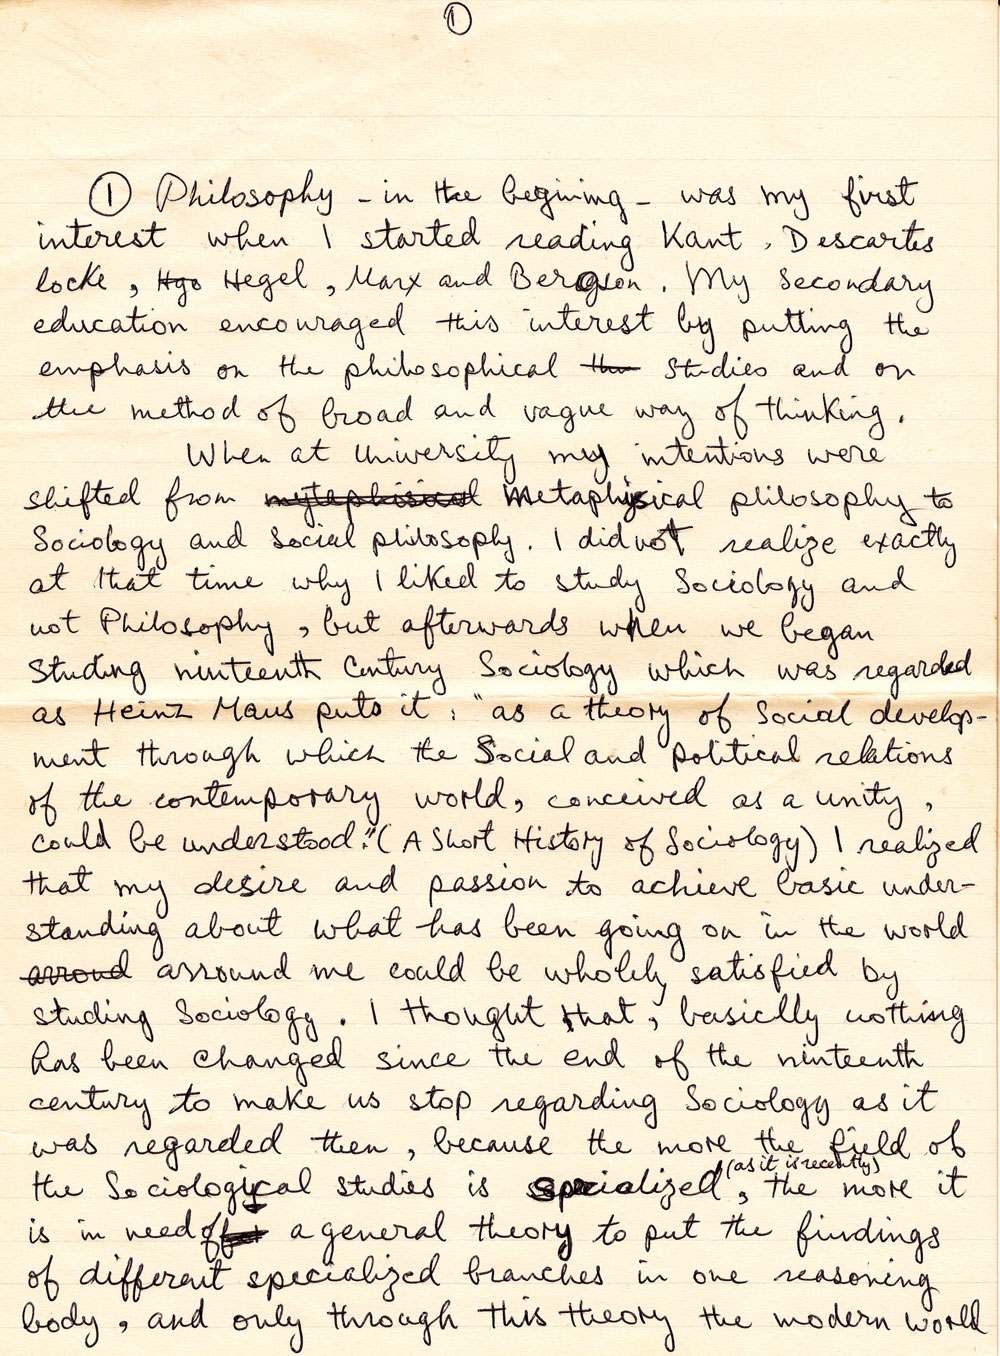 ①
① Philosophy - in the begining - was my first
interest when I started reading Kant, Descartes
locke, Hgo Hegel, Marx and Bergson. My Secondary
education encouraged this interest by putting the
emphasis on the philosophical the studies and on
the method of broad and vague way of thinking.
When at University my intentions were
shifted from mytaphisical Metaphysical philosophy to
Sociology and Social philosophy. I did not realize exactly
at that time why I liked to study Sociology and
not Philosophy, but afterwards when we began
Studing ninteenth Century Sociology which was regarded
as Heinz Maus puts it: "as a theory of Social develop-
ment through which the Social and political relations
of the contemporary world, conceived as a unity,
could be understood." (A Short History of Sociology) I realized
that my desire and passion to achieve basic under-
standing about what has been going on in the world
arround arround me could be wholely satisfied by
studing Sociology. I thought that, basiclly nothing
has been changed since the end of the ninteenth
century to make us stop regarding Sociology as it
was regarded then, because the more the field of
(as it is recently)
the Sociological studies is specialized, the more it
is in need of for a general theory to put the findings
of different specialized branches in one reasoning
body, and only through this theory the modern world